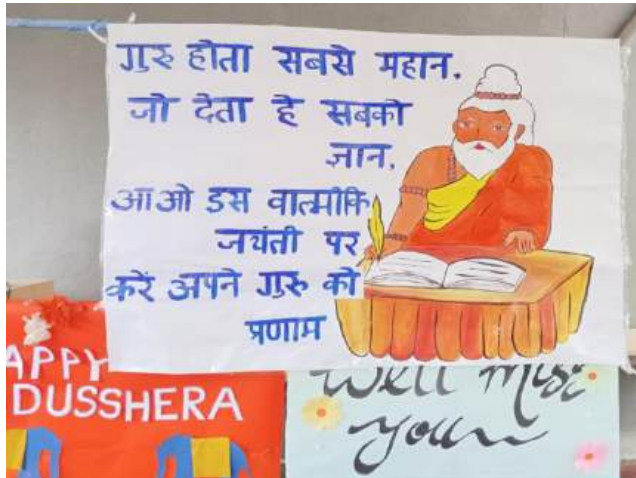 गुरु होता सबसे महान,
जो देता है सबको
ज्ञान,
आओ इस वाल्मीकि
जयंती पर
करें अपने गुरु को
प्रणाम
APPY
DUSSHERA
Well miss
you